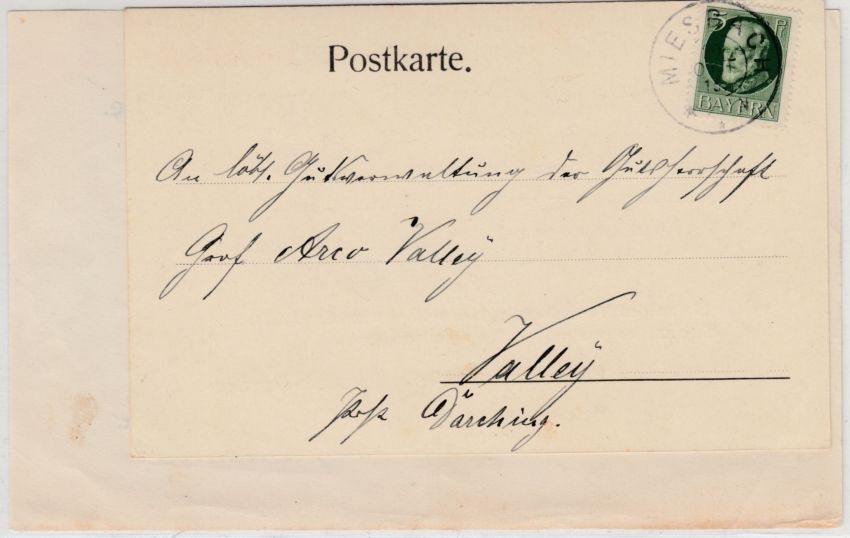 Postkarte.
MIESBACH
5 P
BAYERN
An löbl. Gutsverwaltung der Gutsherrschaft
Graf Arco Valleÿ
Valleÿ
Post Darching.